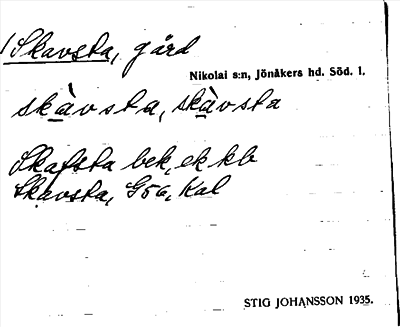 1 Skavsta, gård
Nikolai s:n, Jönåkers hd. Söd. l.
skàvsta, skàvsta
Skafsta bek, ek kb
Skavsta, G56, Kal
STIG JOHANSSON 1935.